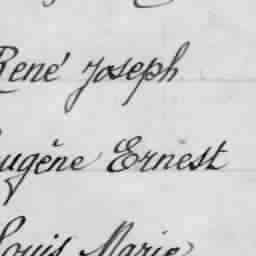 René Joseph
Eugène Ernest
Louis Marie